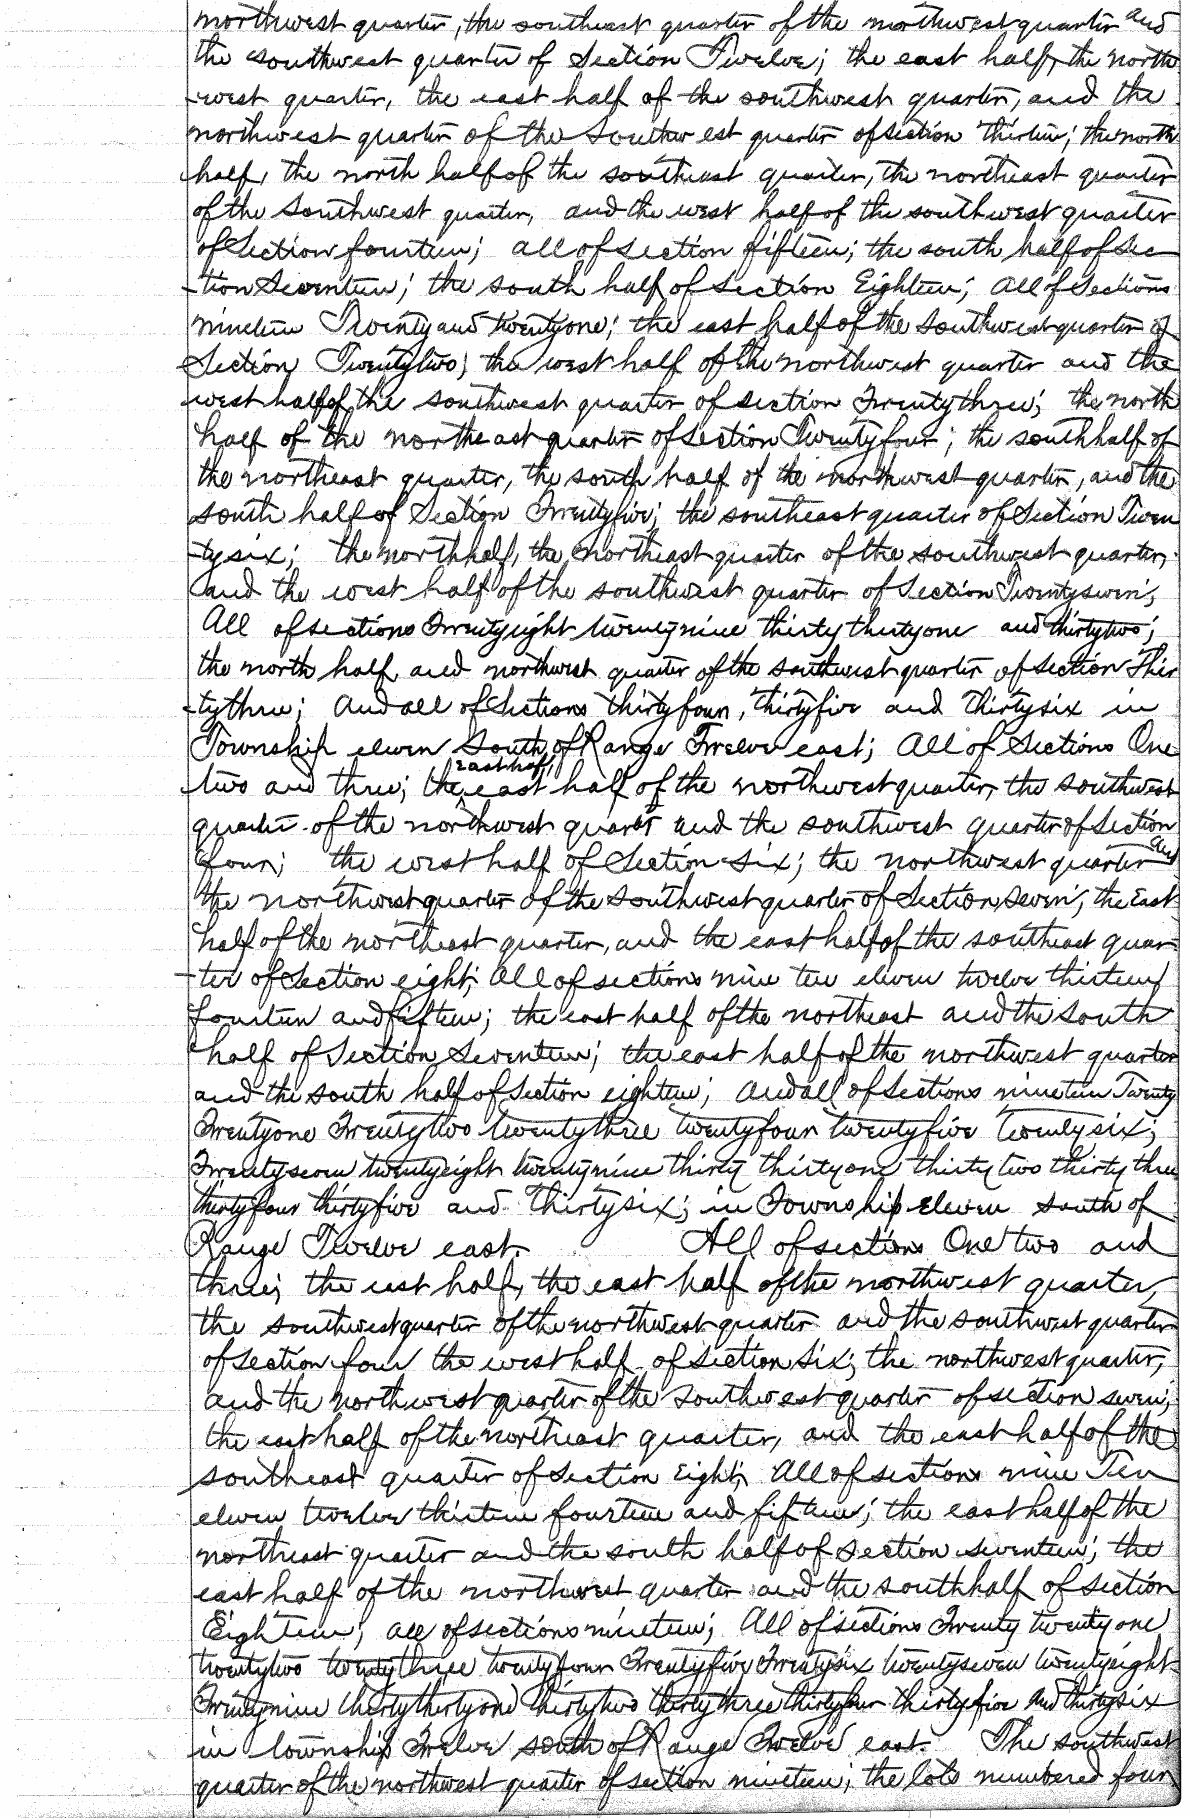 northwest quarter, the southeast quarter of the northwest quarter and
the southwest quarter of Section Twelve; the east half, the north
-west quarter, the east half of the southwest quarter, and the
northwest quarter of the Southwest quarter of section thirteen; the north
half, the north half of the southeast quarter, the northeast quarter
of the Southwest quarter, and the west half of the southwest quarter
of Section fourteen; all of section fifteen; the south half of Sec
-tion Seventeen; the south half of Section Eighteen; All of Sections
nineteen Twenty and twentyone; the east half of the southwest quarter of
Section Twentytwo; the west half of the northwest quarter and the
west half of the southwest quarter of section Twentythree; the north
half of the northeast quarter of section Twentyfour; the south half of
the northeast quarter, the south half of the northwest quarter, and the
south half of Section Twentyfive; the southeast quarter of Section Twen
-ty six; the north half, the northeast quarter of the southwest quarter,
and the west half of the southwest quarter of Section Twentyseven;
All of sections Twentyeight twentynine thirty thirtyone and thirtytwo;
the north half, and northwest quarter of the southwest quarter of section Thir
-tythree; And all of Sections thirtyfour, thirtyfive and thirtysix in
Township eleven South of Range Twelve east; All of Sections One
two and three; the east half, east half of the northwest quarter, the southwest
quarter of the northwest quarter and the southwest quarter of Section
four; the west half of Section six; the northwest quarter and
the northwest quarter of the southwest quarter of Section seven; the East
half of the northeast quarter, and the east half of the southeast quar
-ter of Section eight; All of sections nine ten eleven twelve thirteen
fourteen and fifteen; the east half of the northeast and the south
half of Section Seventeen; the east half of the northwest quarter
and the south half of Section eighteen; And all of Sections nineteen Twenty
Twentyone Twentytwo twentythree twentyfour twentyfive twentysix;
Twentyseven twentyeight twentynine thirty thirtyone thirtytwo thirtythree
thirtyfour thirtyfive and thirtysix; in Township eleven south of
Range Twelve east. All of sections One two and
three; the east half, the east half of the northwest quarter,
the southwest quarter of the northwest quarter and the southwest quarter
of section four the west half of section six; the northwest quarter,
and the northwest quarter of the southwest quarter of section seven;
the east half of the northeast quarter, and the east half of the
southeast quarter of Section Eight; All of sections nine Ten
eleven twelve thirteen fourteen and fifteen; the east half of the
northeast quarter and the south half of section seventeen; the
east half of the northwest quarter and the south half of section
Eighteen; all of sections nineteen; All of sections Twenty twentyone
twentytwo twentythree twentyfour Twentyfive Twentysix twentyseven twentyeight
Twentynine thirty thirtyone thirtytwo thirtythree thirtyfour thirtyfive and thirtysix
in Township Twelve south of Range Twelve east. The southwest
quarter of the northwest quarter of section nineteen; the lots numbered four